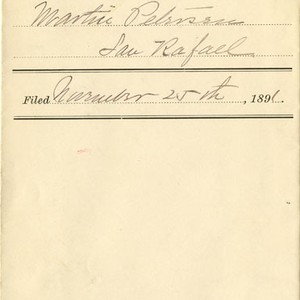 Martin Petersen
San Rafael
Filed November 25th, 1891.